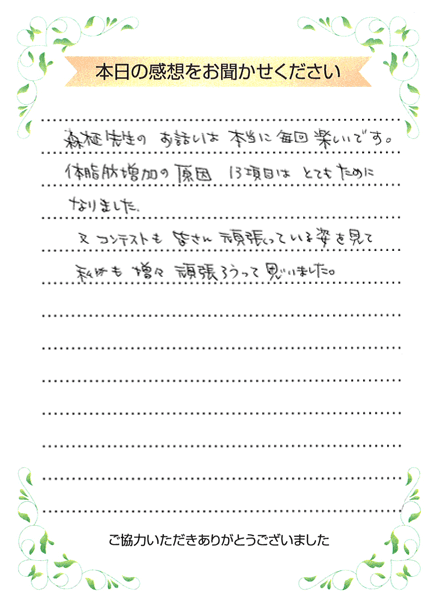 本日の感想をお聞かせください
森柾先生の お話しは 本当に 毎回 楽しいです。
体脂肪増加の 原因 13項目は とても ために
なりました。
又 コンテストも 皆さん 頑張っている 姿を見て
私も 増々 頑張ろうって 思いました。
ご協力いただきありがとうございました